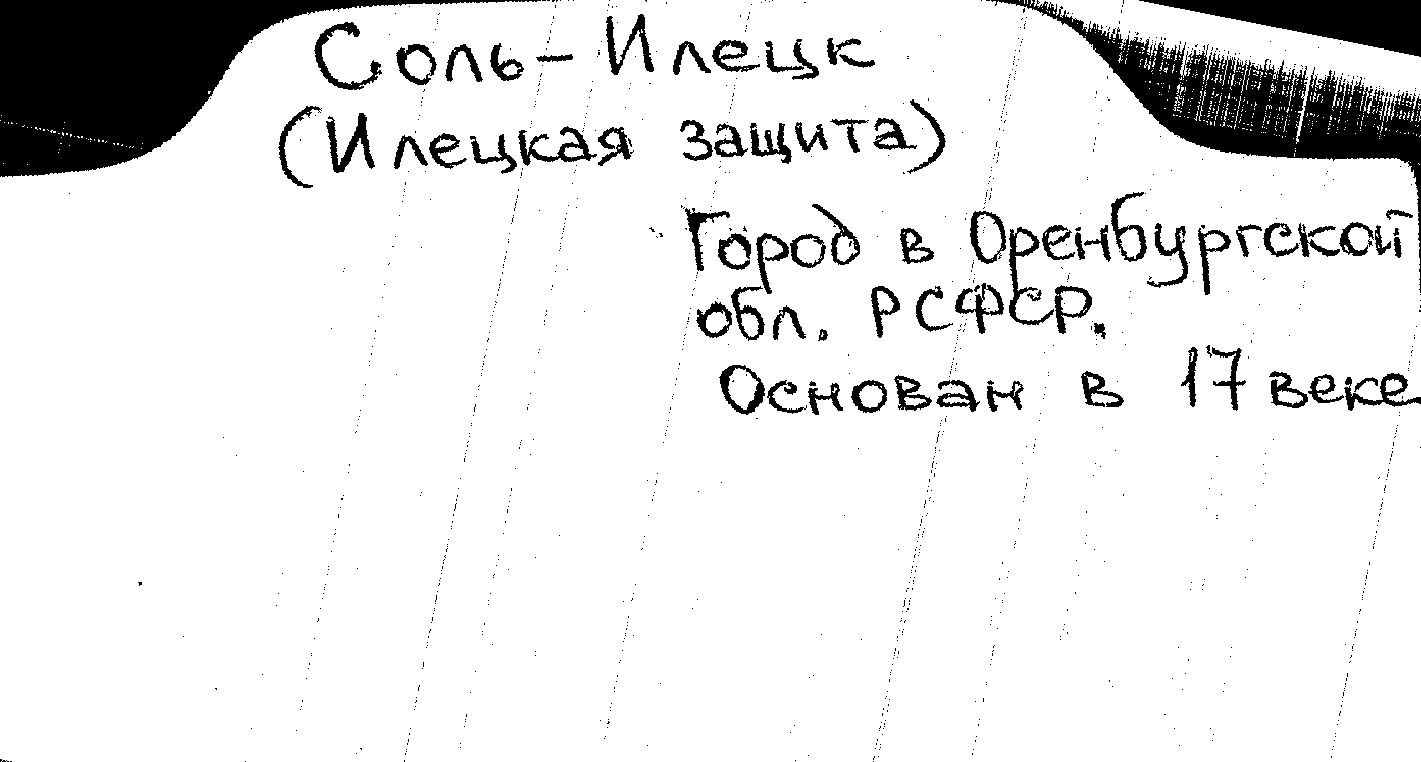 Соль-Илецк
(Илецкая защита)
Город в Оренбургской
обл. РСФСР.
Основан в 17 веке